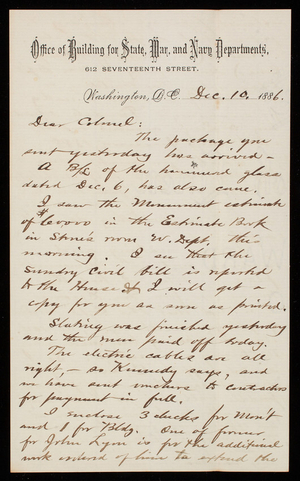 Office of Building for State, War, and Navy Departments,
612 SEVENTEENTH STREET.
Washington, D.C. Dec. 10, 1886.
Dear Colonel:
The package you
sent yesterday has arrived –
A B/L of the hammered glass
dated Dec. 6, has also come.
I saw the Monument estimate
of $60000 in the Estimate Book
in Stone's room W. Dept, this
morning. I see that the
Sundry Civil bill is reported
to the House & I will get a
copy for you as soon as printed.
Slating was finished yesterday
and the men paid off today.
The electric cables are all
right, – so Kennedy says, and
we have sent vouchers to contractors
for payment in full.
I enclose 3 checks for Mon't
and 1 for Bldg. One of former
for John Lyon is for the additional
work ordered of him to extend the